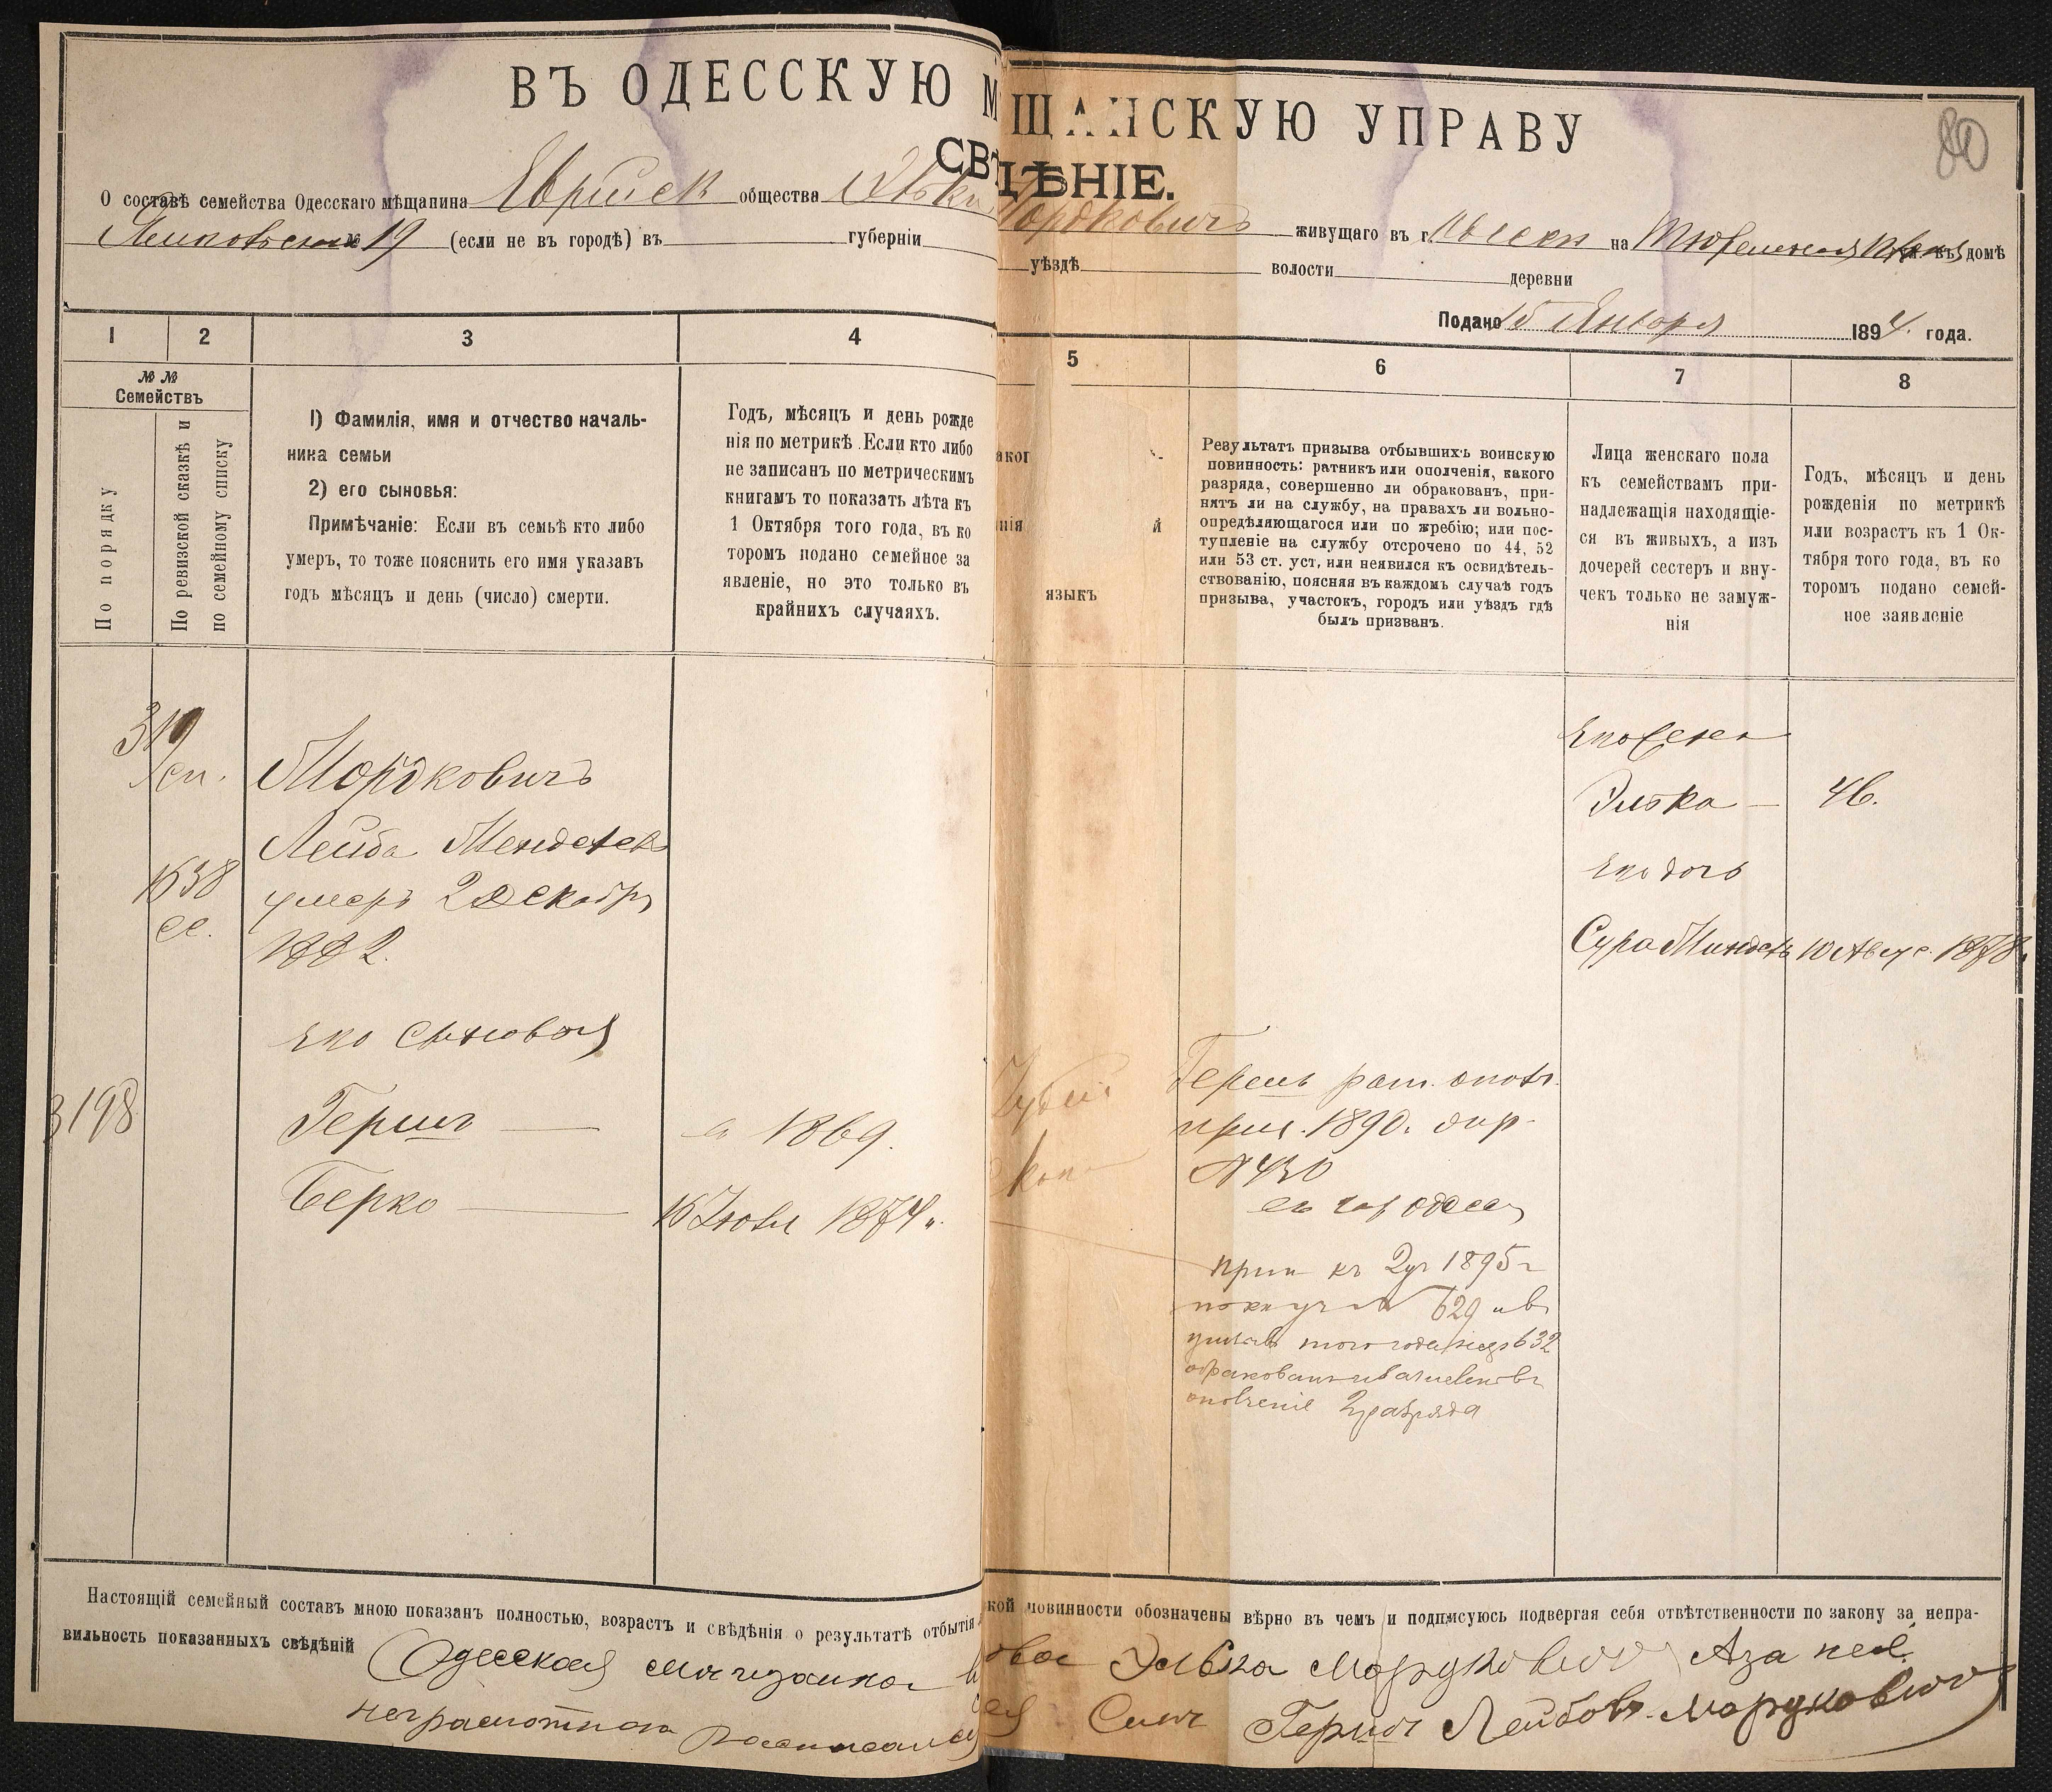 ВЪ ОДЕССКУЮ М ЩАНСКУЮ УПРАВУ
80
СВѢДѢНІЕ.
О составѣ семейства Одесскаго мѣщанина Еврейск общества Эльки Мордковичъ живущаго въ г. Одессѣ на ул. въ домѣ
№ 19 (если не въ городѣ) въ губерніи уѣздѣ волости деревни
Подано 15 Января 1894. года.
1 2 3 4 5 6 7 8
№ №
Семействъ
По порядку
По ревизской сказкѣ и
по семейному списку
1) Фамилія, имя и отчество началь-
ника семьи
2) его сыновья:
Примѣчаніе: Если въ семьѣ кто либо
умеръ, то тоже пояснить его имя указавъ
годъ мѣсяцъ и день (число) смерти.
Годъ, мѣсяцъ и день рожде
нія по метрикѣ. Если кто либо
не записанъ по метрическимъ
книгамъ то показать лѣта къ
1 Октября того года, въ ко
торомъ подано семейное за
явленіе, но это только въ
крайнихъ случаяхъ.
аког
нія
языкъ
Результатъ призыва отбывшихъ воинскую
повинность: ратникъ или ополченія, какого
разряда, совершенно ли обракованъ, при-
нятъ ли на службу, на правахъ ли вольно-
опредѣляющагося или по жребію; или пос-
тупленіе на службу отсрочено по 44, 52
или 53 ст. уст, или неявился къ освидѣтель-
ствованію, поясняя въ каждомъ случаѣ годъ
призыва, участокъ, городъ или уѣздъ гдѣ
былъ призванъ.
Лица женскаго пола
къ семействамъ при-
надлежащія находящіе-
ся въ живыхъ, а изъ
дочерей сестеръ и вну-
чекъ только не замуж-
нія
Годъ, мѣсяцъ и день
рожденія по метрикѣ
или возрастъ къ 1 Ок-
тября того года, въ ко
торомъ подано семей-
ное заявленіе
Мордковичъ
Лейба Менделев
умеръ 2 Декабря
1882.
его сыновья
3198
Герш — 1869.
Берко — 16 Іюля 1874 г.
Гершъ рат. ополч.
приз. 1890.
№ 430
прип къ 2 уч 1895 г
629 и въ
того года 632
обракованъ и зачисленъ въ
ополченіе 2 разряда
его жена
Элька — 46.
его дочь
Сура Миндель 10 Авгус. 1878 г.
Настоящій семейный составъ мною показанъ полностью, возрастъ и свѣдѣнія о результатѣ отбытія кой повинности обозначены вѣрно въ чемъ и подписуюсь подвергая себя отвѣтственности по закону за непра-
вильность показанныхъ свѣдѣній Одесская мѣщанка вдова Элька Мордковичъ А за нея
неграмотная росписался Синъ Гершъ Лейбовъ Мордковичъ